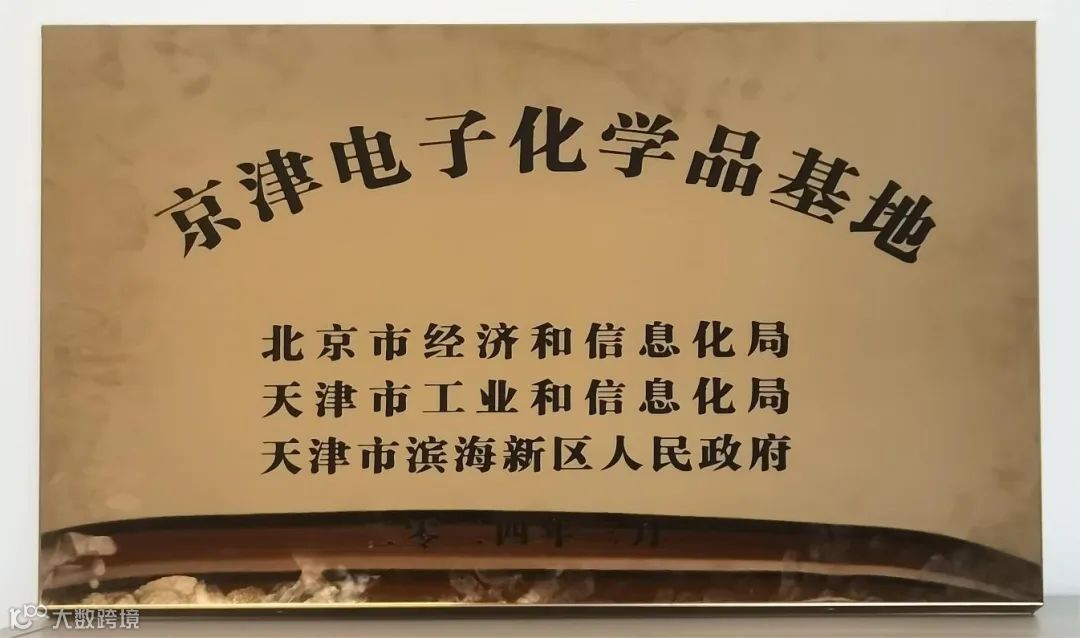 京津电子化学品基地
北京市经济和信息化局
天津市工业和信息化局
天津市滨海新区人民政府
二零二四年 月
大数跨境